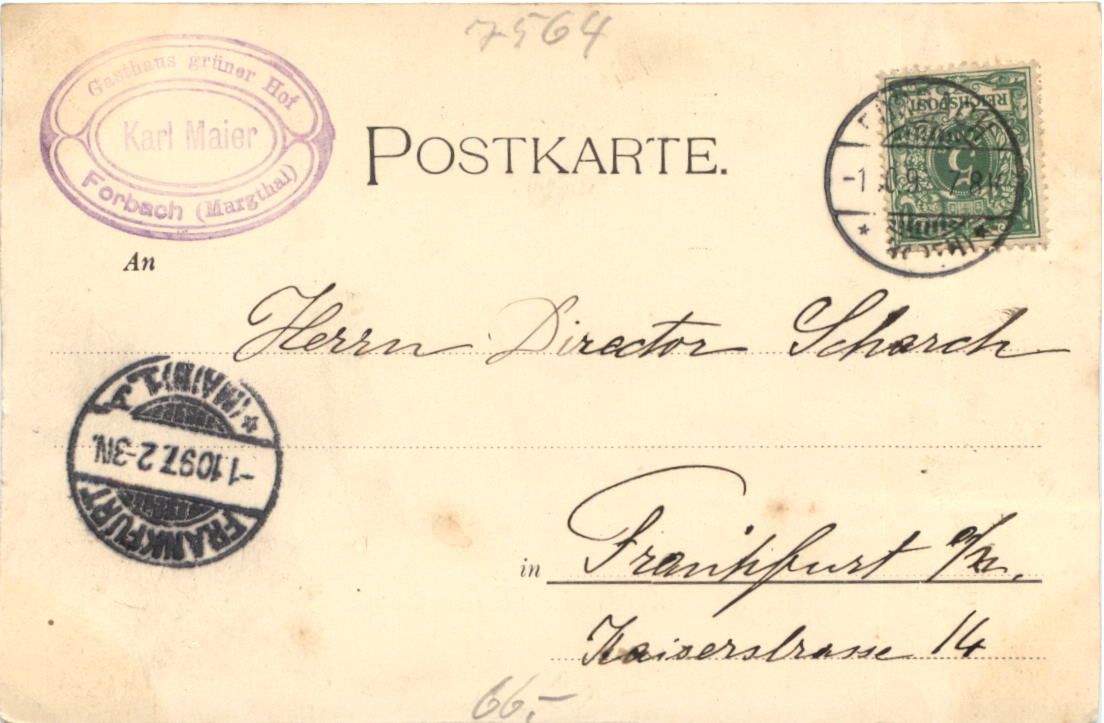 7564
Gasthaus grüner Hof
Karl Maier
Forbach (Murgthal)
POSTKARTE.
REICHSPOST
5
7-8N
An
Herrn Director Scharch
FRANKFURT
-1.10 97. 2-3N.
* (MAIN) 1.
in Frankfurt a/M.
Kaiserstrasse 14
66,-